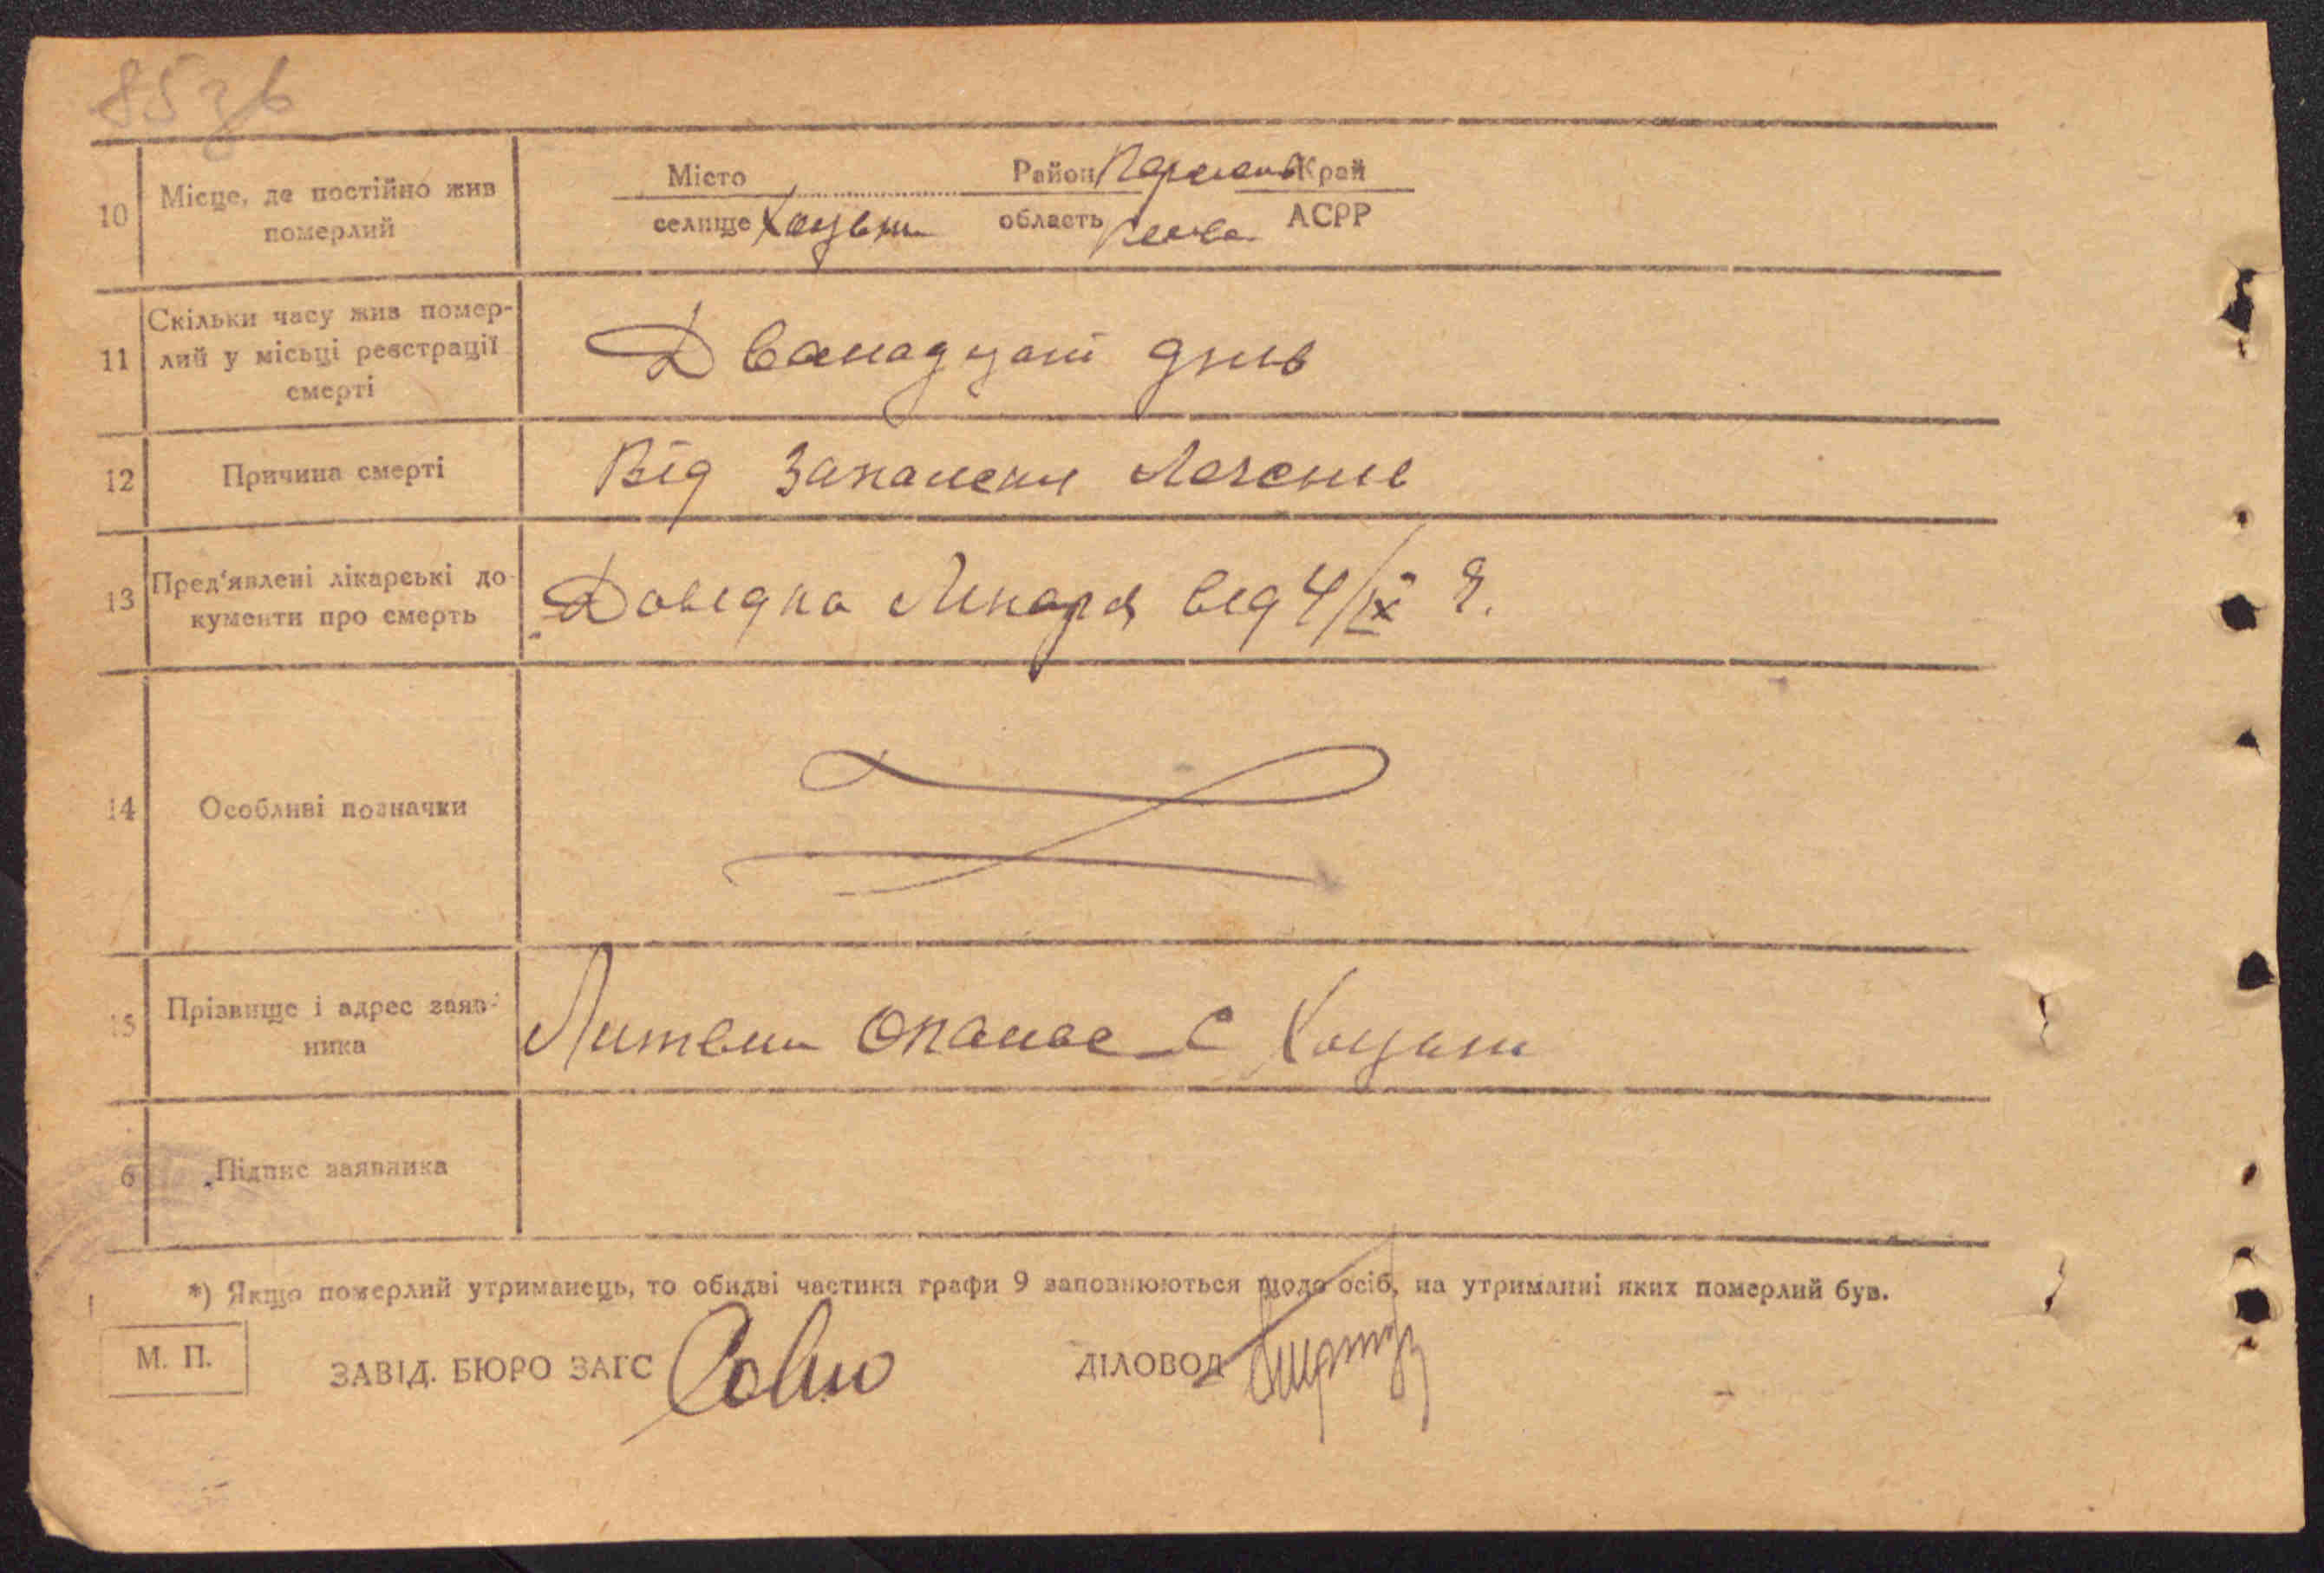 85 зв
10 Місце, де постійно жив померлий
Місто Район Край
селище Хоцьки область Київс АСРР
11 Скільки часу жив помер-
лий у місьці реєстрації
смерті
Дванадцят днів
12 Причина смерті Від запалени Легенів
13 Пред'явлені лікарські до
кументи про смерть
Довідка Лікаря від 4/IX
14 Особливі позначки
15 Прізвище і адрес заяв-
ника
Литвин Опанас с Хоцьки
6 Підпис заявника
*) Якщо померлий утриманець, то обидві частини графи 9 заповнюються щодо осіб, на утриманні яких померлий був.
М. П. ЗАВІД. БЮРО ЗАГС ДІЛОВОД